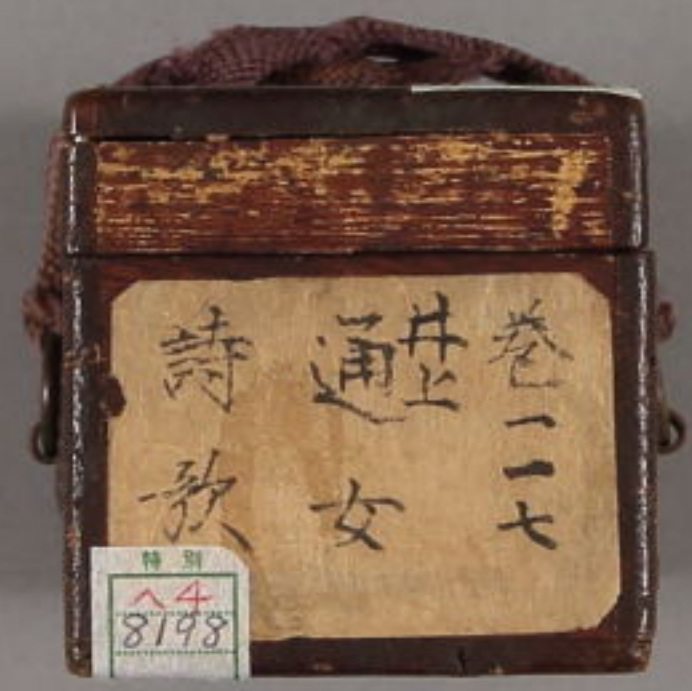 巻一一七
井上
通女
詩歌
特別
ヘ4
8198